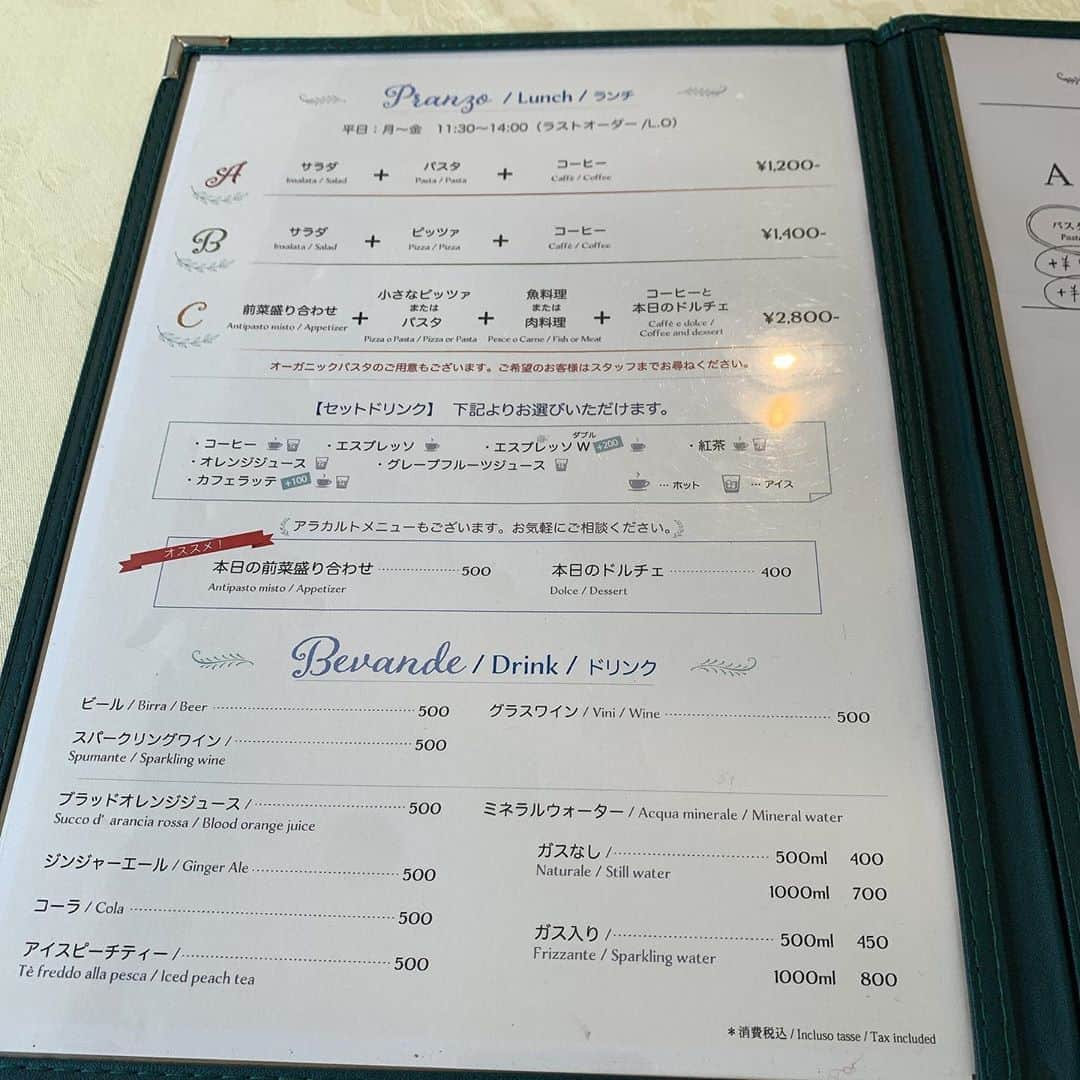 Pranzo / Lunch / ランチ
平日：月〜金 11:30〜14:00（ラストオーダー/L.O）
A サラダ + パスタ + コーヒー ¥1,200-
Insalata / Salad Pasta / Pasta Caffè / Coffee
B サラダ + ピッツァ + コーヒー ¥1,400-
Insalata / Salad Pizza / Pizza Caffè / Coffee
C 前菜盛り合わせ + 小さなピッツァ または パスタ + 魚料理 または 肉料理 + コーヒーと 本日のドルチェ ¥2,800-
Antipasto misto / Appetizer Pizza o Pasta / Pizza or Pasta Pesce o Carne / Fish or Meat Caffè e dolce / Coffee and dessert
オーガニックパスタのご用意もございます。ご希望のお客様はスタッフまでお尋ねください。
【セットドリンク】 下記よりお選びいただけます。
・コーヒー ・エスプレッソ ・エスプレッソ W ダブル +200 ・紅茶
・オレンジジュース ・グレープフルーツジュース
・カフェラッテ +100 … ホット … アイス
アラカルトメニューもございます。お気軽にご相談ください。
オススメ！
本日の前菜盛り合わせ 500 本日のドルチェ 400
Antipasto misto / Appetizer Dolce / Dessert
Bevande / Drink / ドリンク
ビール / Birra / Beer 500 グラスワイン / Vini / Wine 500
スパークリングワイン / 500
Spumante / Sparkling wine
ブラッドオレンジジュース / 500
Succo d' arancia rossa / Blood orange juice
ジンジャーエール / Ginger Ale 500
コーラ / Cola 500
アイスピーチティー / 500
Tè freddo alla pesca / Iced peach tea
ミネラルウォーター / Acqua minerale / Mineral water
ガスなし / 500ml 400
Naturale / Still water
1000ml 700
ガス入り / 500ml 450
Frizzante / Sparkling water
1000ml 800
＊消費税込 / Incluso tasse / Tax included
A
パスタ
Pasta